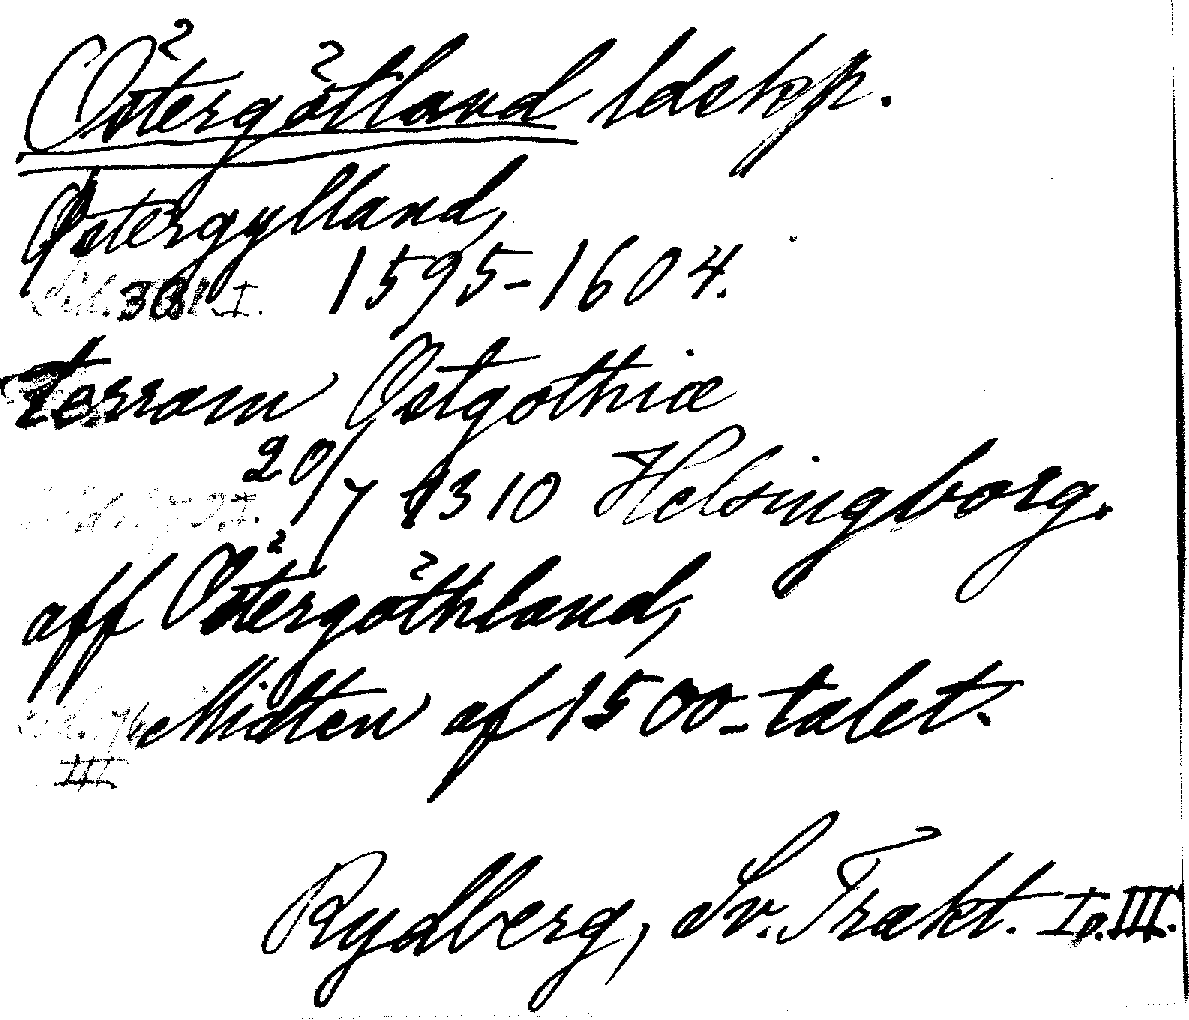 Östergötland ldskp.
Østergylland,
Sid. 381 I. 1595-1604.
terram Østgothiæ
20/7 1310 Helsingborg.
aff Östergöthland,
Midten af 1500-talet.
III
Rydberg, Sv. Trakt. I o. III.